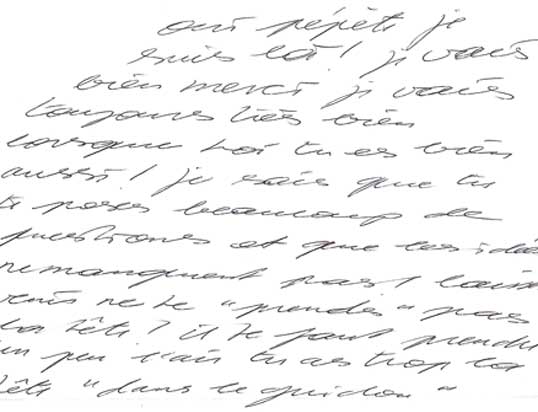 oui pépète je
suis là ! je vais
bien merci je vais
toujours très bien
lorsque toi tu es bien
aussi ! je sais que tu
te poses beaucoup de
questions et que les idées
ne manquent pas ! laisse
venir ne te "prends" pas
la tête ! il te faut prendre
un peu l'air tu as trop la
tête "dans le guidon"